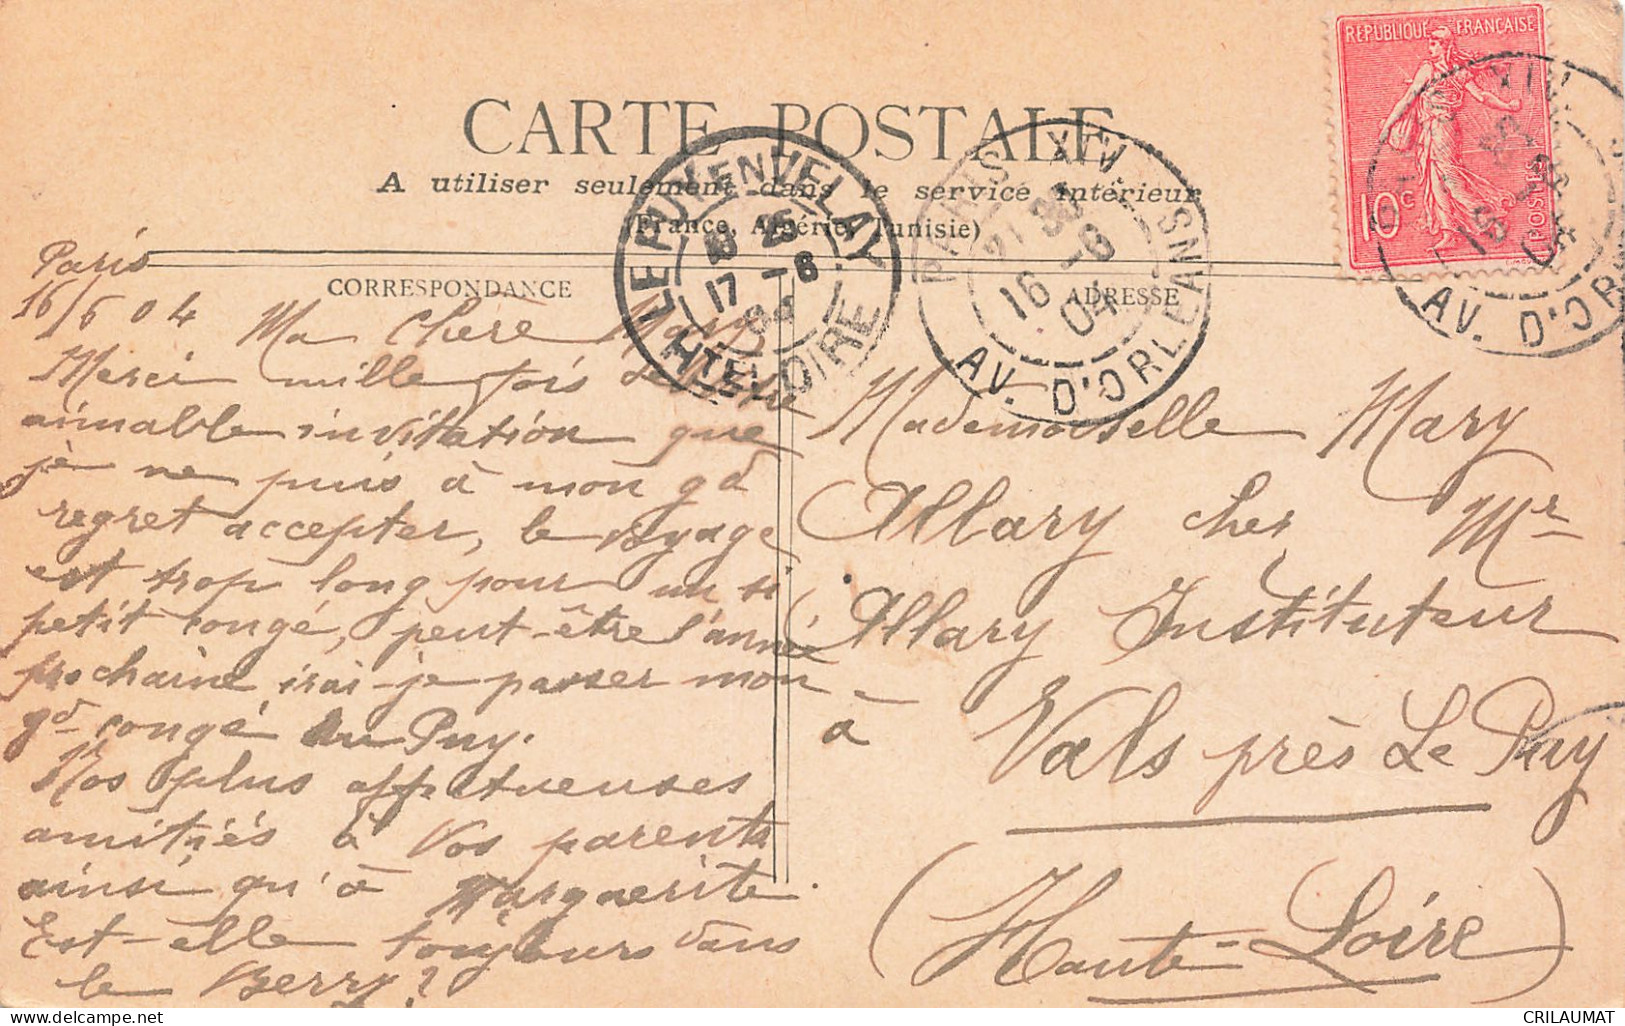 CARTE POSTALE
A utiliser seulement dans le service intérieur
(France, Algérie, Tunisie)
CORRESPONDANCE
ADRESSE
REPUBLIQUE FRANCAISE
10c
POSTES
LE PUY EN VELAY
18 25
17 - 6
04
HTE LOIRE
PARIS XIV
16 - 6
04
AV. D'ORLEANS
XIV
16
04
AV. D'ORLEANS
Paris
16/6 04
Ma Chère Mary
Merci mille fois de votre
aimable invitation que
je ne puis à mon gd
regret accepter, le voyage
est trop long pour un si
petit congé, peut-être l'année
prochaine irai-je passer mon
gd congé au Puy.
Nos plus affectueuses
amitiés à vos parents
ainsi qu'à Marguerite.
Est-elle toujours dans
le Berry?
Mademoiselle Mary
Allary chez Mr
Allary Instituteur
à Vals près Le Puy
(Haute-Loire)
CRILAUMAT